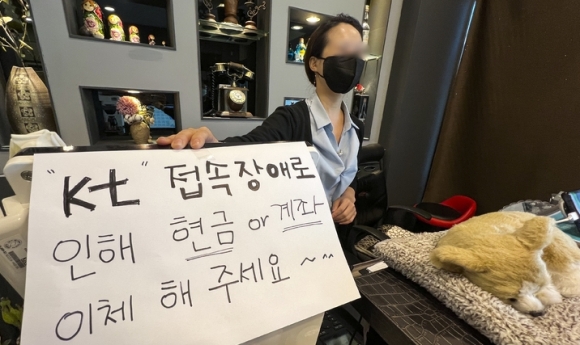 "Kt" 접속장애로
인해 현금 or 계좌
이체 해 주세요~^^